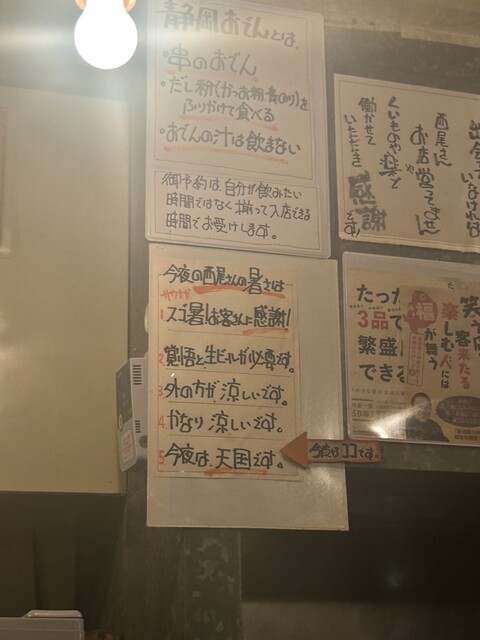 静岡おでんとは、
・串のおでん
・だし粉(かつお粉、青のり)を
ふりかけて食べる
・おでんの汁は飲まない
御予約は、自分が飲みたい
時間ではなく揃って入店できる
時間でお受けします。
今夜の西尾さんの暑さは
1. スゴ暑!お客さんに感謝!
2. 覚悟と生ビールが必要です。
3. 外の方が、涼しいです。
4. かなり涼しいです。
5. 今夜は、天国です。
今夜はココです。
西尾さん
お店営ってません
くいものや楽で
働かせて
いただき
感謝
です!
客来たる
楽しむ人には
福が舞う
たった
3品で
繁盛
できる